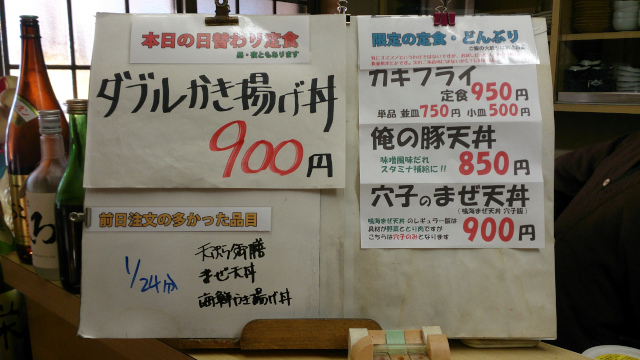 本日の日替わり定食
昼・夜ともあります
ダブルかき揚げ丼
900円
前日注文の多かった品目
1/24分
天ぷら御膳
まぜ天丼
海鮮かき揚げ丼
限定の定食・どんぶり
カキフライ
定食950円
単品 並皿750円 小皿500円
俺の豚天丼
味噌風味だれ
スタミナ補給に!!
850円
穴子のまぜ天丼
(鳴海まぜ天丼 穴子飯)
鳴海まぜ天丼 のレギュラー版は
具材が野菜ととり肉ですが
こちらは穴子のみとなります
900円
ろ